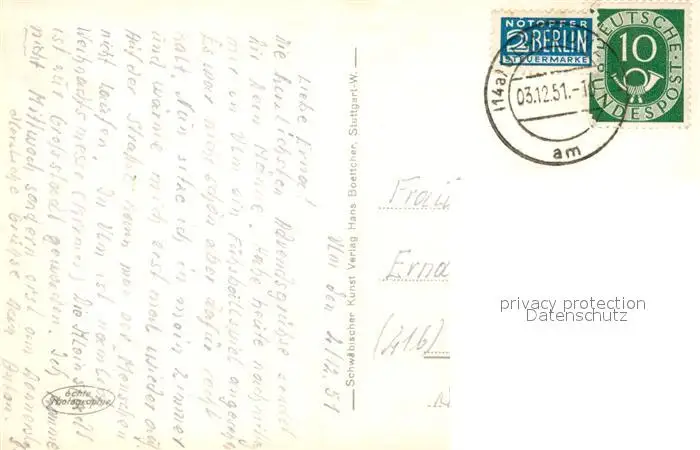 Ulm den 2/12.51
Liebe Erna!
Die herzlichsten Adventsgrüße sendet
Dir Dein Männe. Habe heute nachmittag
mir in Ulm ein Fussballspiel angesehen
Es war nicht schön aber dafür recht
kalt. Nun sitze ich in mein Zimmer
und wärme mich erst mal wieder auf
Auf der Straße kann man der Menschen
nicht laufen. In Ulm ist nämlich
Weihnachtsmesse (Rummel) Die kleine Stadt
ist zur Großstadt geworden. Ich komme
nicht Mittwoch sondern erst am Donnerstag
Herzliche Grüße Dein
echte
Photographie
Schwäbischer Kunst Verlag Hans Boettcher, Stuttgart-W.
NOTOPFER
2 BERLIN
STEUERMARKE
DEUTSCHE
BUNDESPOST
10
(14a)
03.12.51.-1
am
Frau
Erna
(21b)
privacy protection
Datenschutz